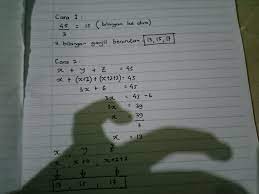 Cara 1 :
45 = 15 ( bilangan ke dua )
3
x bilangan ganjil berurutan 13, 15, 17
Cara 2 :
x + y + z = 45
x + (x+2) + (x+2+2) = 45
3x + 6 = 45
3x = 45 - 6
3x = 39
x = 39
3
x = 13
x y z
x x+2 x+2+2
13 15 17